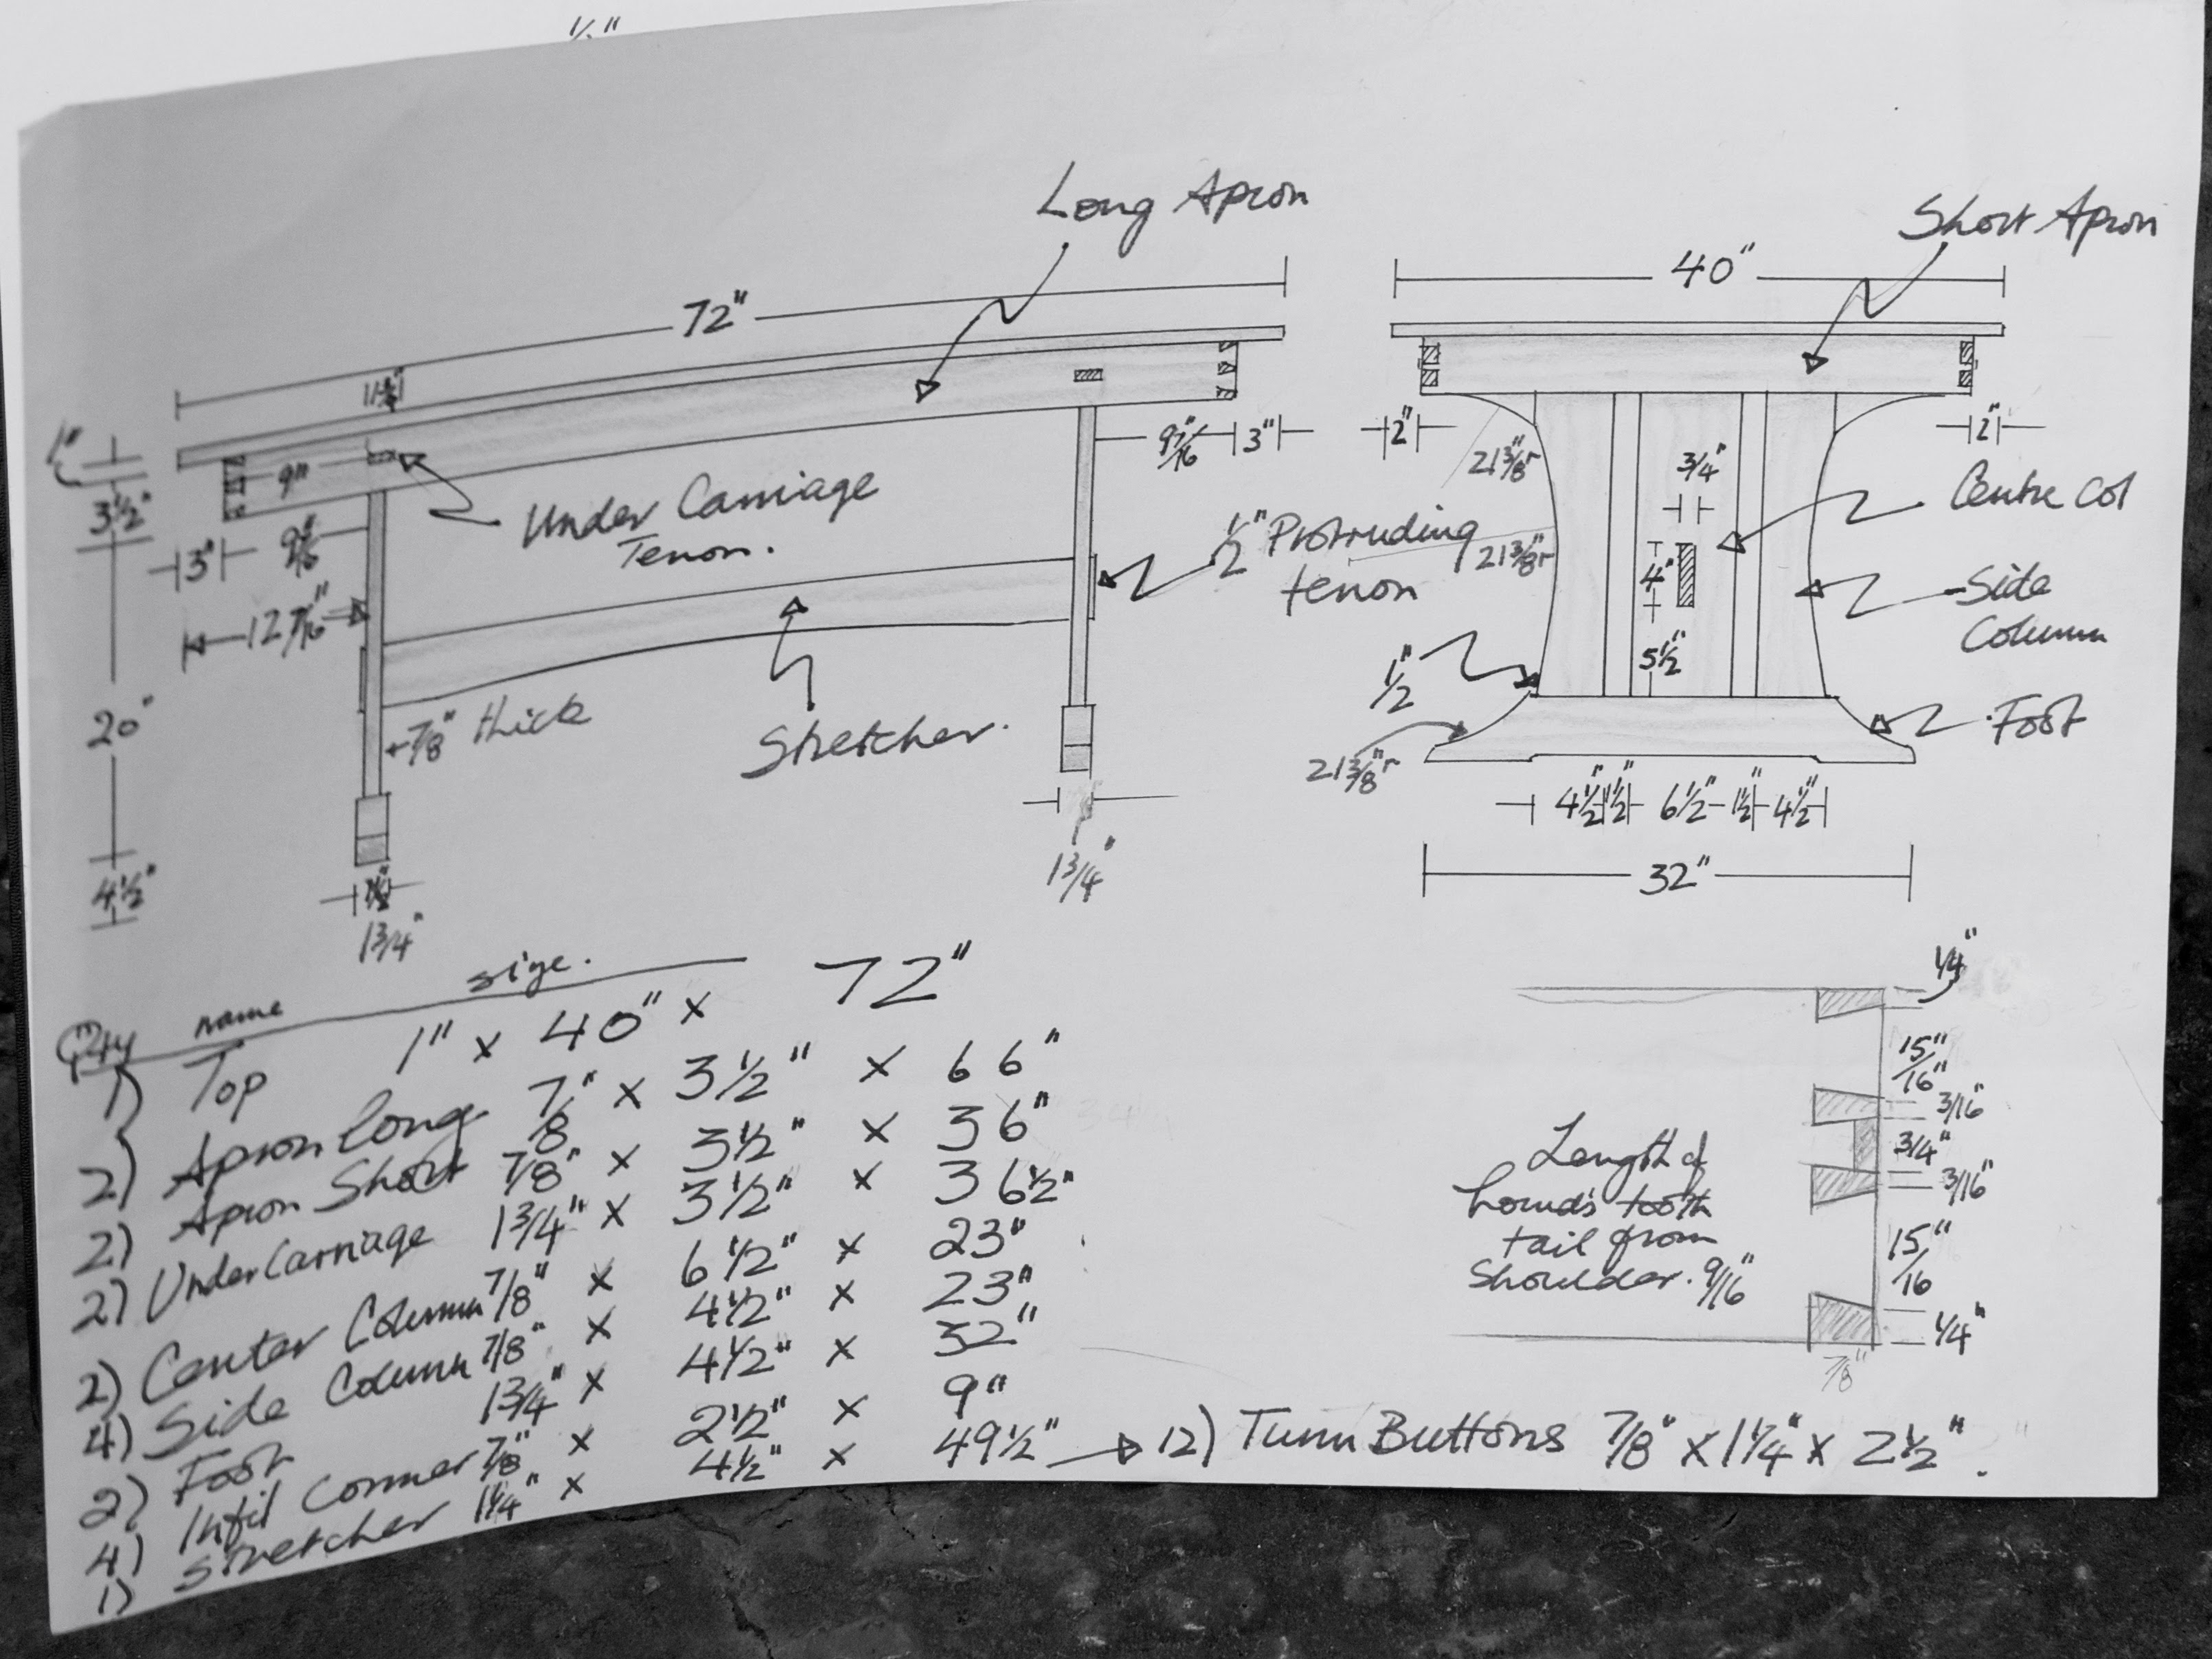 Long Apron
Short Apron
72"
40"
1"
3½"
9"
9 7/16"
3"
2"
2"
3"
9 7/16"
12 7/16"
20"
4½"
1¾"
1¾"
Under Carriage
Tenon.
½" Protruding
tenon
21⅜"r
21⅜"r
21⅜"r
¾"
4"
5½"
½"
Centre Col
Side
Column
Foot
⅞" thick
Stretcher.
4½" 1½" 6½" 1½" 4½"
32"
Qty name size.
1) Top 1" x 40" x 72"
2) Apron long 7/8" x 3½" x 66"
2) Apron Short 7/8" x 3½" x 36"
2) UnderCarriage 1¾" x 3½" x 36½"
2) Center Column 7/8" x 6½" x 23"
4) Side Column 7/8" x 4½" x 23"
2) Foot 1¾" x 4½" x 32"
4) Infil Corner 7/8" x 2½" x 9"
1) Stretcher 1¼" x 4½" x 49½"
12) Turn Buttons 7/8" x 1¼" x 2½".
Length of
hounds tooth
tail from
Shoulder. 9/16"
¼"
15/16"
3/16"
3/4"
3/16"
15/16"
¼"
7/8"